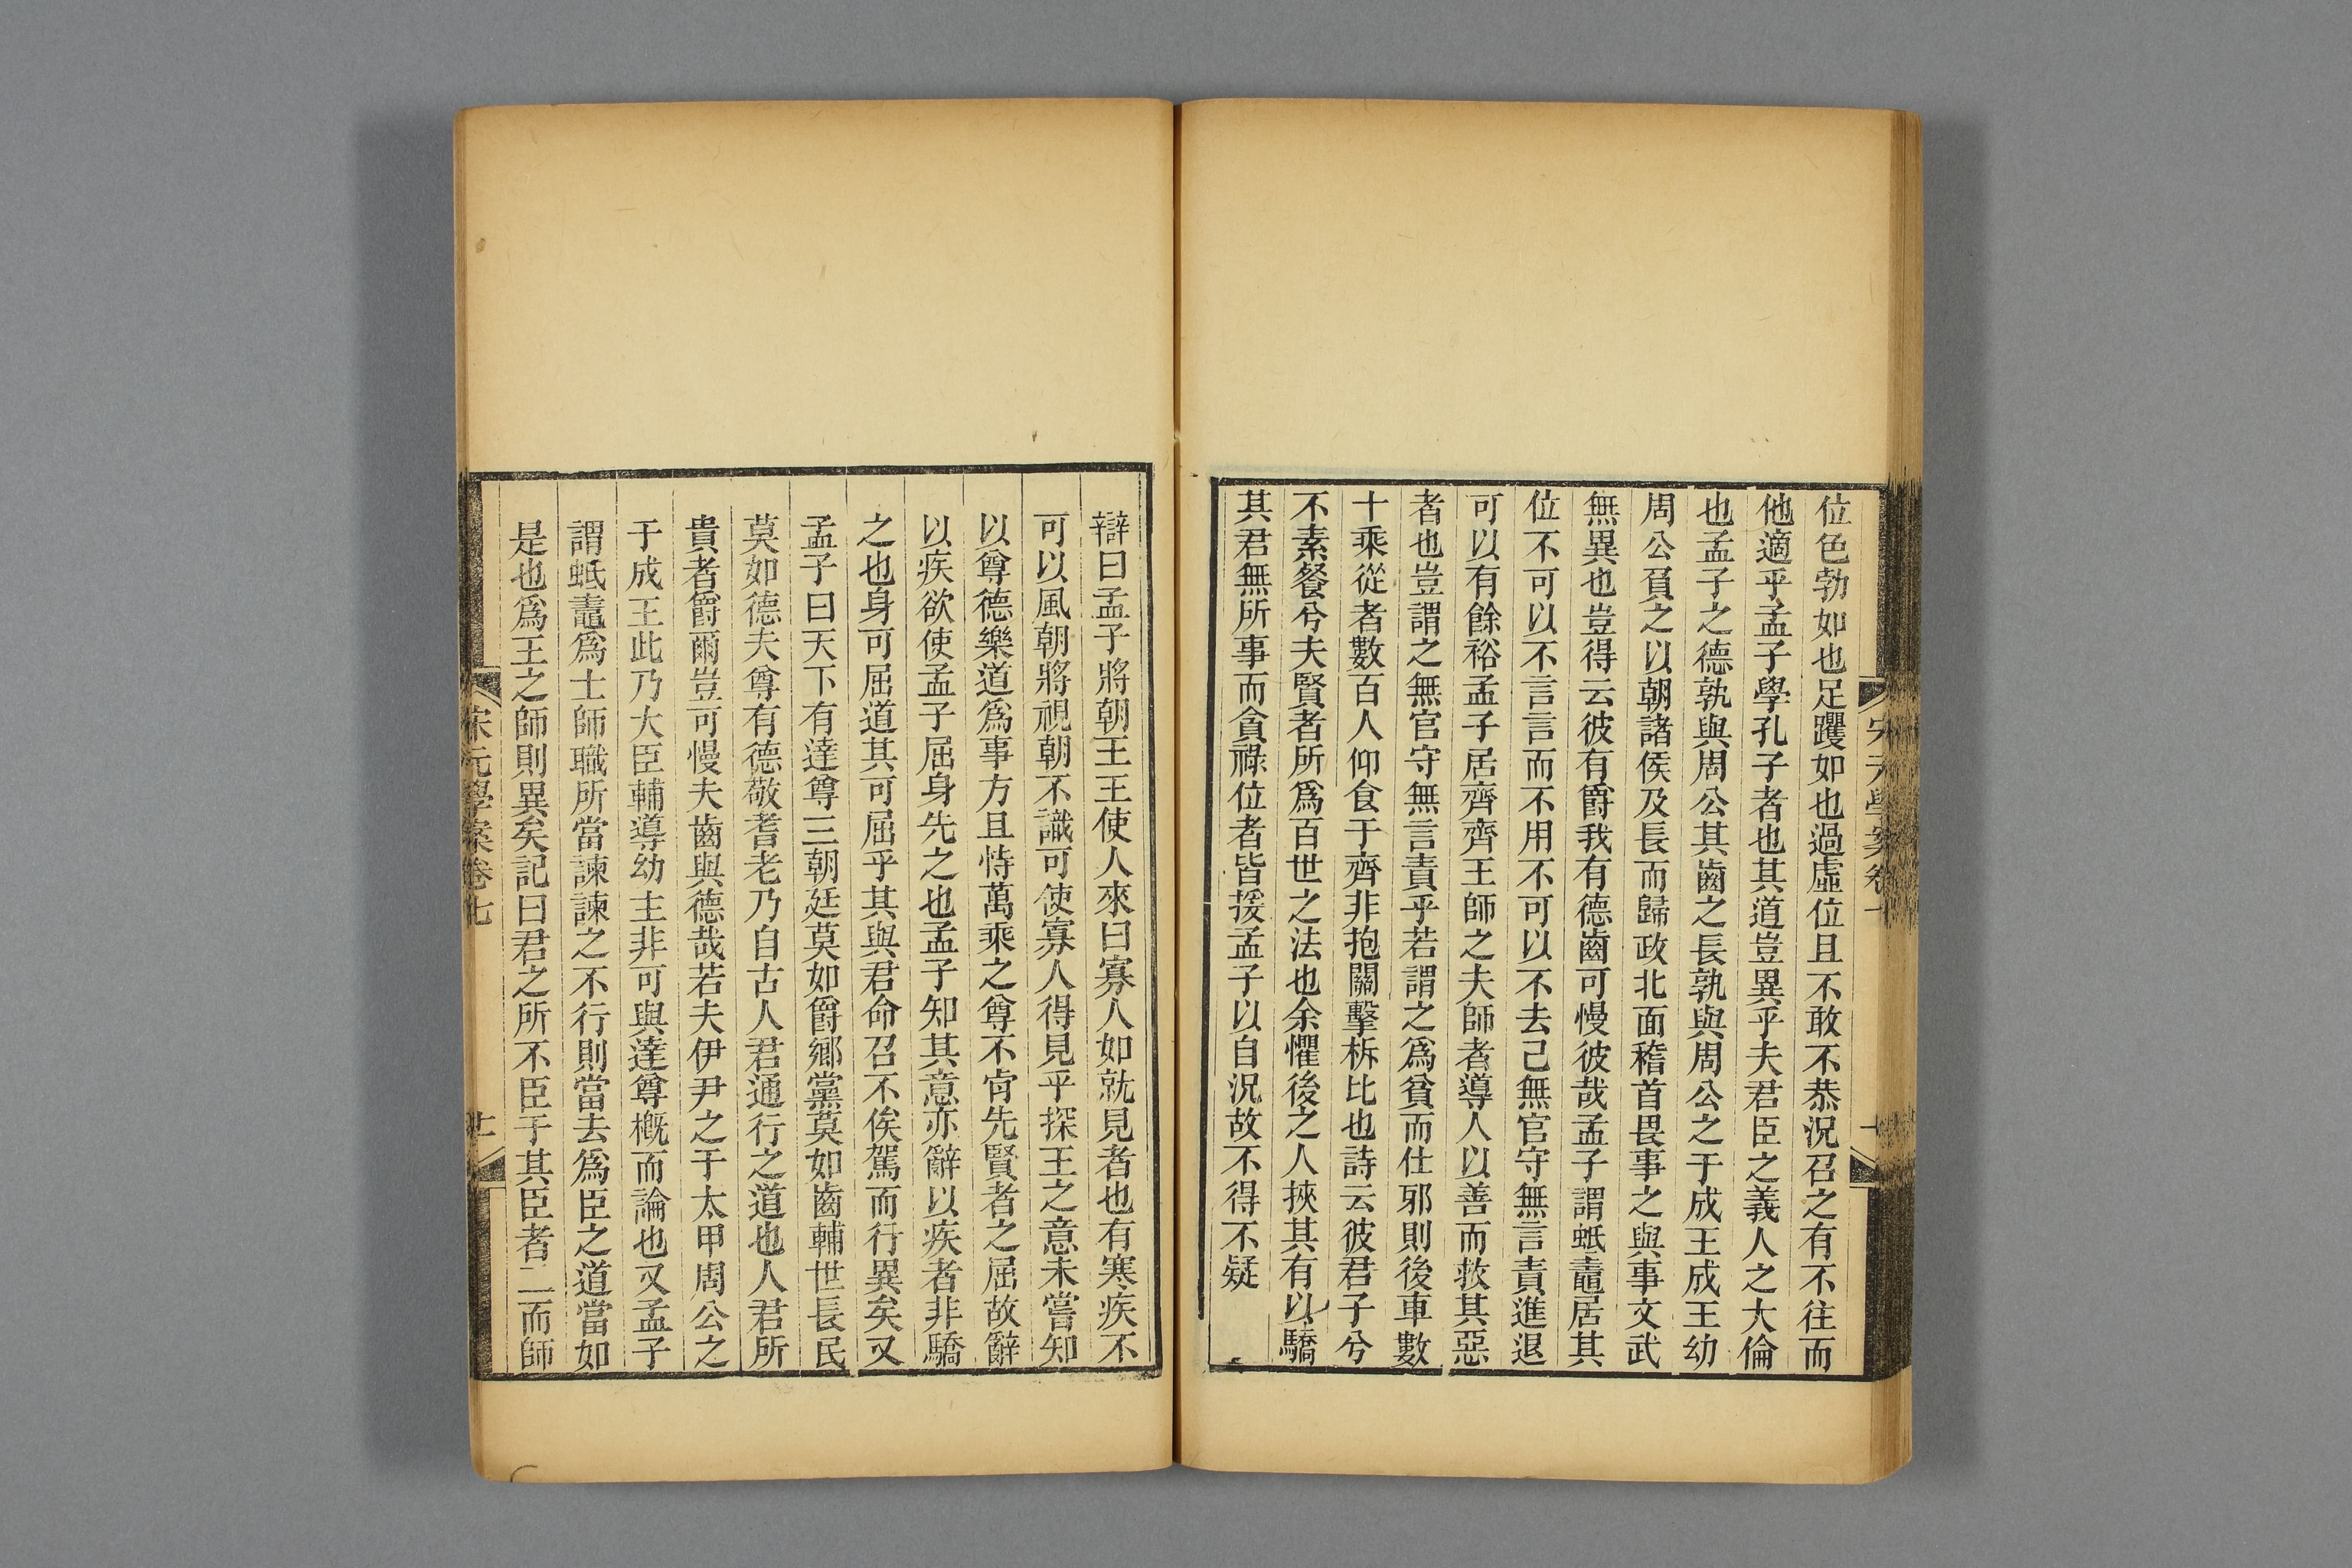 位色勃如也足躩如也過虛位且不敢不恭況召之有不往而
他適乎孟子學孔子者也其道豈異乎夫君臣之義人之大倫
也孟子之德孰與周公其齒之長孰與周公之于成王成王幼
周公負之以朝諸侯及長而歸政北面稽首畏事之與事文武
無異也豈得云彼有爵我有德齒可慢彼哉孟子謂蚳鼃居其
位不可以不言言而不用不可以不去己無官守無言責進退
可以有餘裕孟子居齊齊王師之夫師者導人以善而救其惡
者也豈謂之無官守無言責乎若謂之爲貧而仕邪則後車數
十乘從者數百人仰食于齊非抱關擊柝比也詩云彼君子兮
不素餐兮夫賢者所爲百世之法也余懼後之人挾其有以驕
其君無所事而貪祿位者皆援孟子以自況故不得不疑
辯曰孟子將朝王王使人來曰寡人如就見者也有寒疾不
可以風朝將視朝不識可使寡人得見乎探王之意未嘗知
以尊德樂道爲事方且恃萬乘之尊不肯先賢者之屈故辭
以疾欲使孟子屈身先之也孟子知其意亦辭以疾者非驕
之也身可屈道其可屈乎其與君命召不俟駕而行異矣又
孟子曰天下有達尊三朝廷莫如爵鄉黨莫如齒輔世長民
莫如德夫尊有德敬耆老乃自古人君通行之道也人君所
貴者爵爾豈可慢夫齒與德哉若夫伊尹之于太甲周公之
于成王此乃大臣輔導幼主非可與達尊槪而論也又孟子
謂蚳鼃爲士師職所當諫諫之不行則當去爲臣之道當如
是也爲王之師則異矣記曰君之所不臣于其臣者二而師
宋元學案卷七